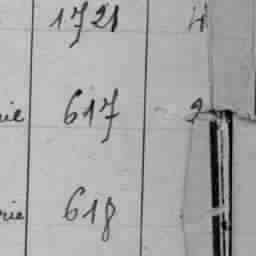 1721 4
rie 617 2
rie 618